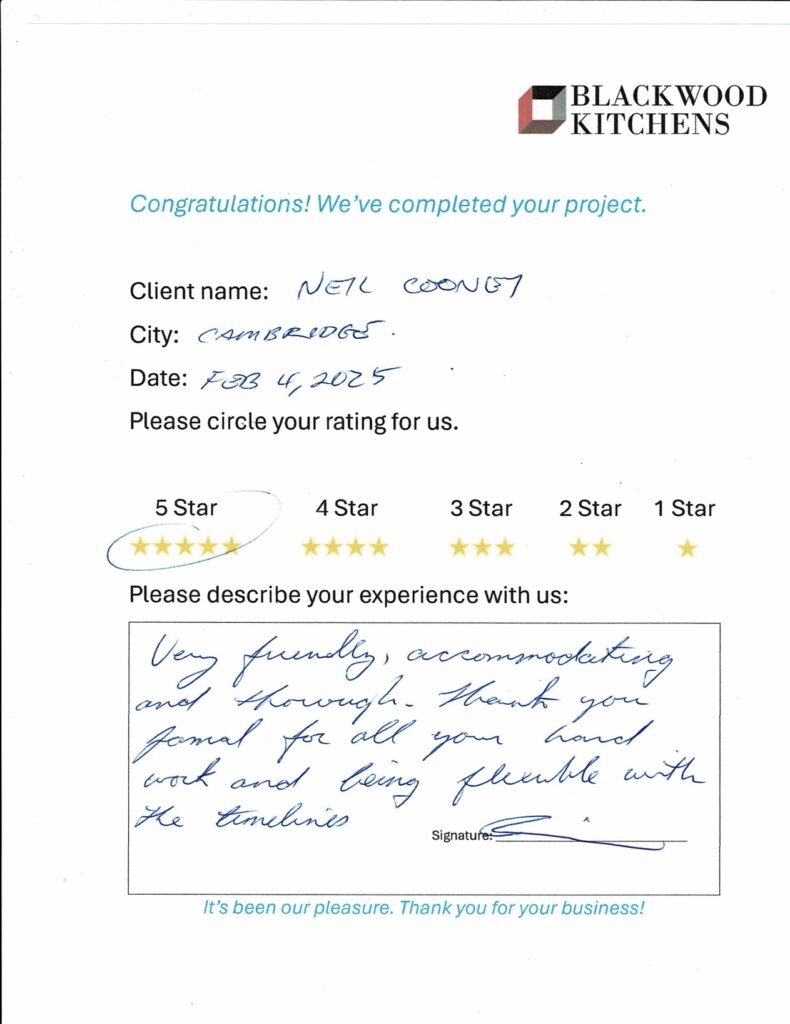 BLACKWOOD
KITCHENS
Congratulations! We've completed your project.
Client name: NEIL COONEY
City: CAMBRIDGE.
Date: FEB 4, 2025
Please circle your rating for us.
5 Star 4 Star 3 Star 2 Star 1 Star
Please describe your experience with us:
Very friendly, accommodating
and thorough. Thank you
Jamal for all your hard
work and being flexible with
the timelines
Signature:
It's been our pleasure. Thank you for your business!